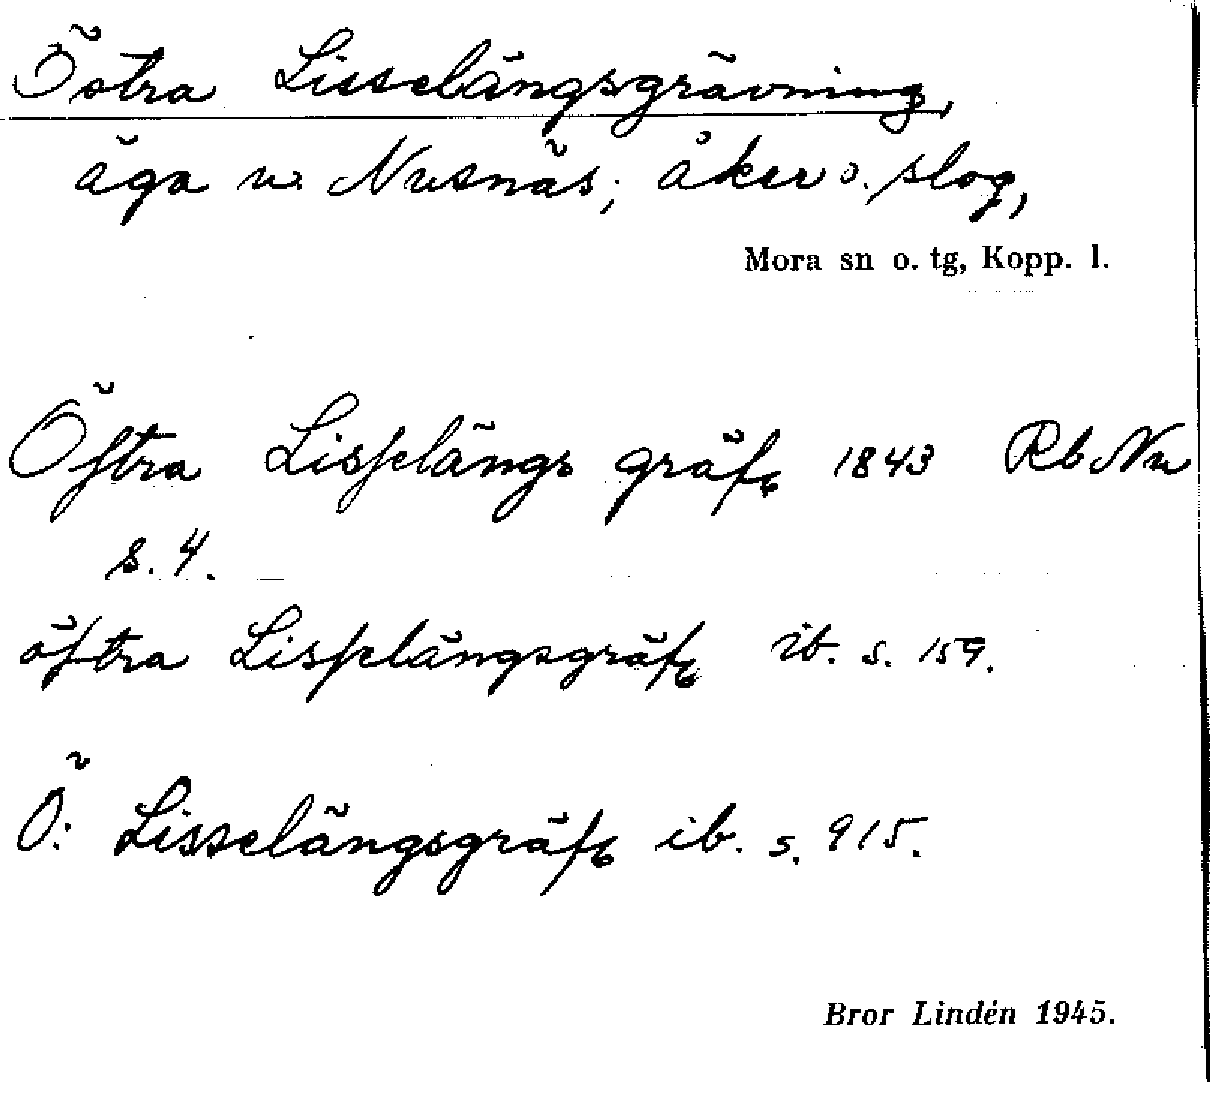 Östra Lisselängsgrävning,
äga u. Nusnäs; åker o. slog,
Mora sn o. tg, Kopp. l.
Östra Lisselängs gräfs 1843 Rb Nu
s. 4.
östra Lisselängsgräfs ib. s. 159.
Ö: Lisselängsgräfs ib. s. 915.
Bror Lindén 1945.